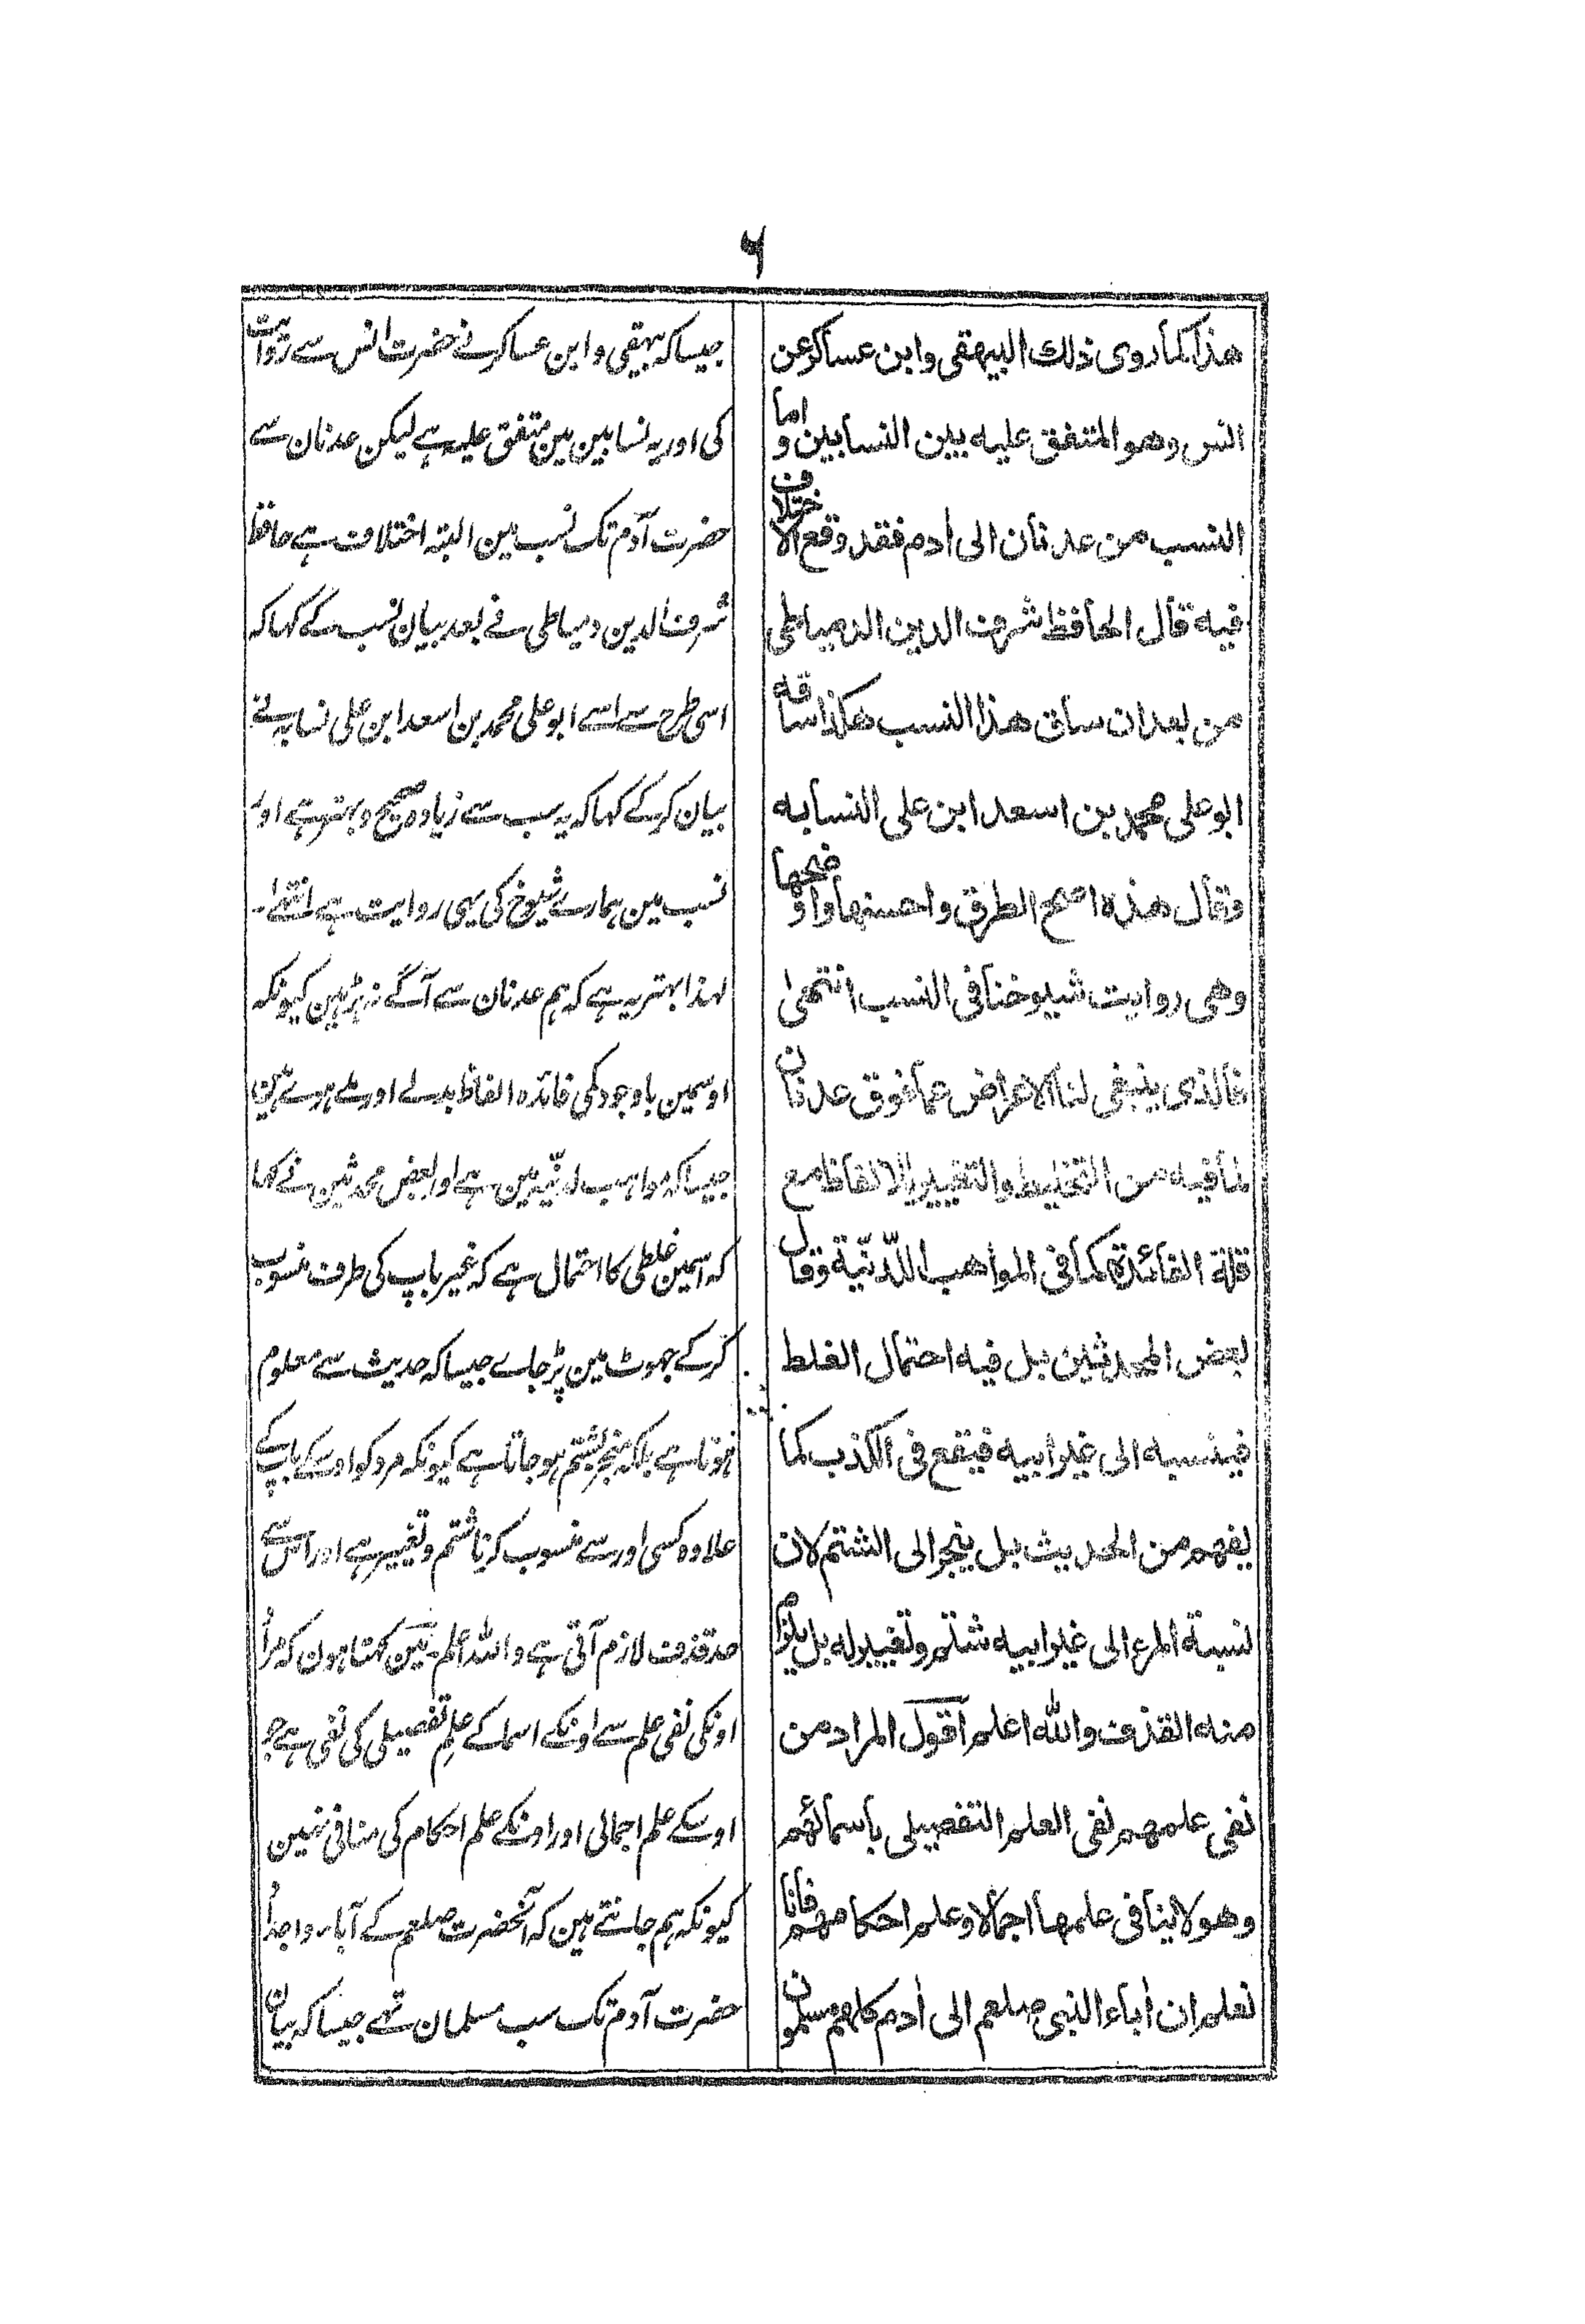 ۶
هذا كما روى ذلك البيهقى وابن عساكر عن
انس وهو المتفق عليه بين النسابين واما
النسب من عدنان الى أدم فقد وقع الاختلاف
فيه قال الحافظ شرف الدين الدمياطى
من بعد ان ساق هذا النسب هكذا ساقه
ابو على محمد بن اسعد ابن على النسابه
وقال هذه اصح الطرق واحسنها واوضحها
وهى روايت شيوخنا فى النسب انتهىٰ
فالذى ينبغى لنا الاعراض عما فوق عدنان
لما فيه من التخليط والتغيير بالالفاظ مع
قلة الفائدة كما فى المواهب اللّدنّية وقال
بعض المحدثين بل فيه احتمال الغلط
فينسبه الى غير ابيه فيقع فى الكذب كما
يفهم من الحديث بل ينجر الى الشتم لان
نسبة المرء الى غير ابيه شتم وتغيير له بل يلزم
منه القذف والله اعلم اقول المراد من
نفى علمهم نفى العلم التفصيلى باسمائهم
وهو لا ينافى علمها اجمالا وعلم احكامهم فانا
نعلم ان أباء النبى صلعم الى أدم كلهم مسلمون
جیسا کہ بیہقی و ابن عساکر نے حضرت انس سے روایت
کی اور یہ نسابین مین متفق علیہ ہے لیکن عدنان سے
حضرت آدم تک نسب مین البتہ اختلاف ہے حافظ
شرف الدین دمیاطی نے بعد بیان نسب کے کہا کہ
اسی طرح سے اسے ابو علی محمد بن اسعد ابن علی نسابہ نے
بیان کر کے کہا کہ یہ سب سے زیادہ صحیح و بہتر ہے اور
نسب مین ہمارے شیوخ کی یہی روایت ہے انتہےٰ۔
لہذا بہتر یہ ہے کہ ہم عدنان سے آگے نہ بڑہین کیونکہ
اوسمین باوجود کمی فائدہ الفاظ بدلے اور ملے ہوئے ہین
جیسا کہ مواہب لدنّیہ مین ہے اور بعض محدثین نے کہا
کہ اسمین غلطی کا احتمال ہے کہ غیر باپ کی طرف منسوب
کر کے جہوٹ مین پڑ جاے جیسا کہ حدیث سے معلوم
ہوتا ہے بلکہ منجر بشتم ہو جاتا ہے کیونکہ مرد کو اوسکے باپ کے
علاوہ کسی اور سے منسوب کرنا شتم و تغییر ہے اور اس سے
حد قذف لازم آتی ہے و اللہ اعلم۔ مین کہتا ہون کہ مراد
اونکی نفی علم سے اونکے اسما کے علم تفصیلی کی نفی ہے جو
اوسکے علم اجمالی اور اونکے علم احکام کی منافی نہین
کیونکہ ہم جانتے ہین کہ آنحضرت صلعم کے آباء و اجداد
حضرت آدم تک سب مسلمان تھے جیسا کہ بیان